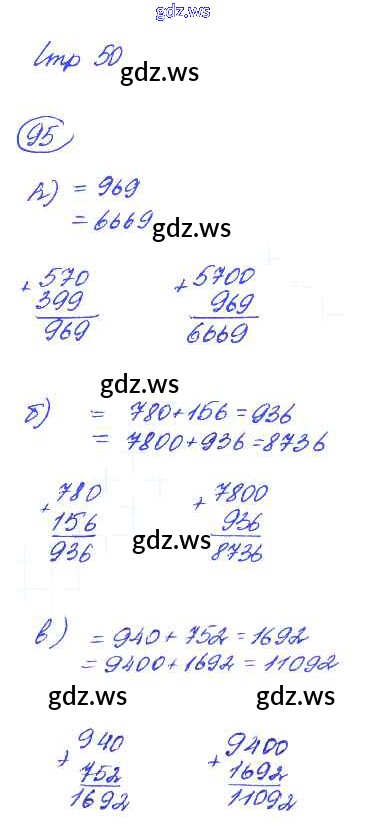 gdz.ws
Стр 50
gdz.ws
95
а) = 969
= 6669
gdz.ws
+ 570 + 5700
399 969
969 6669
gdz.ws
б) = 780+156=936
= 7800+936=8736
780 7800
+ +
156 936
gdz.ws
936 8736
в) = 940+752=1692
= 9400+1692=11092
gdz.ws gdz.ws
940 9400
+ +
752 1692
1692 11092